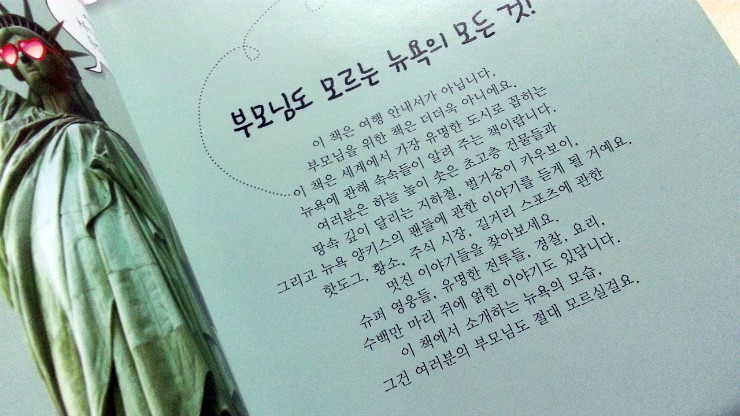 부모님도 모르는 뉴욕의 모든 것!
이 책은 여행 안내서가 아닙니다.
부모님을 위한 책은 더더욱 아니에요.
이 책은 세계에서 가장 유명한 도시로 꼽히는
뉴욕에 관해 속속들이 알려 주는 책이랍니다.
여러분은 하늘 높이 솟은 초고층 건물들과
땅속 깊이 달리는 지하철, 벌거숭이 카우보이,
그리고 뉴욕 양키스의 팬들에 관한 이야기를 듣게 될 거예요.
핫도그, 황소, 주식 시장, 길거리 스포츠에 관한
멋진 이야기들을 찾아보세요.
슈퍼 영웅들, 유명한 전투들, 경찰, 요리,
수백만 마리 쥐에 얽힌 이야기도 있답니다.
이 책에서 소개하는 뉴욕의 모습,
그건 여러분의 부모님도 절대 모르실걸요.